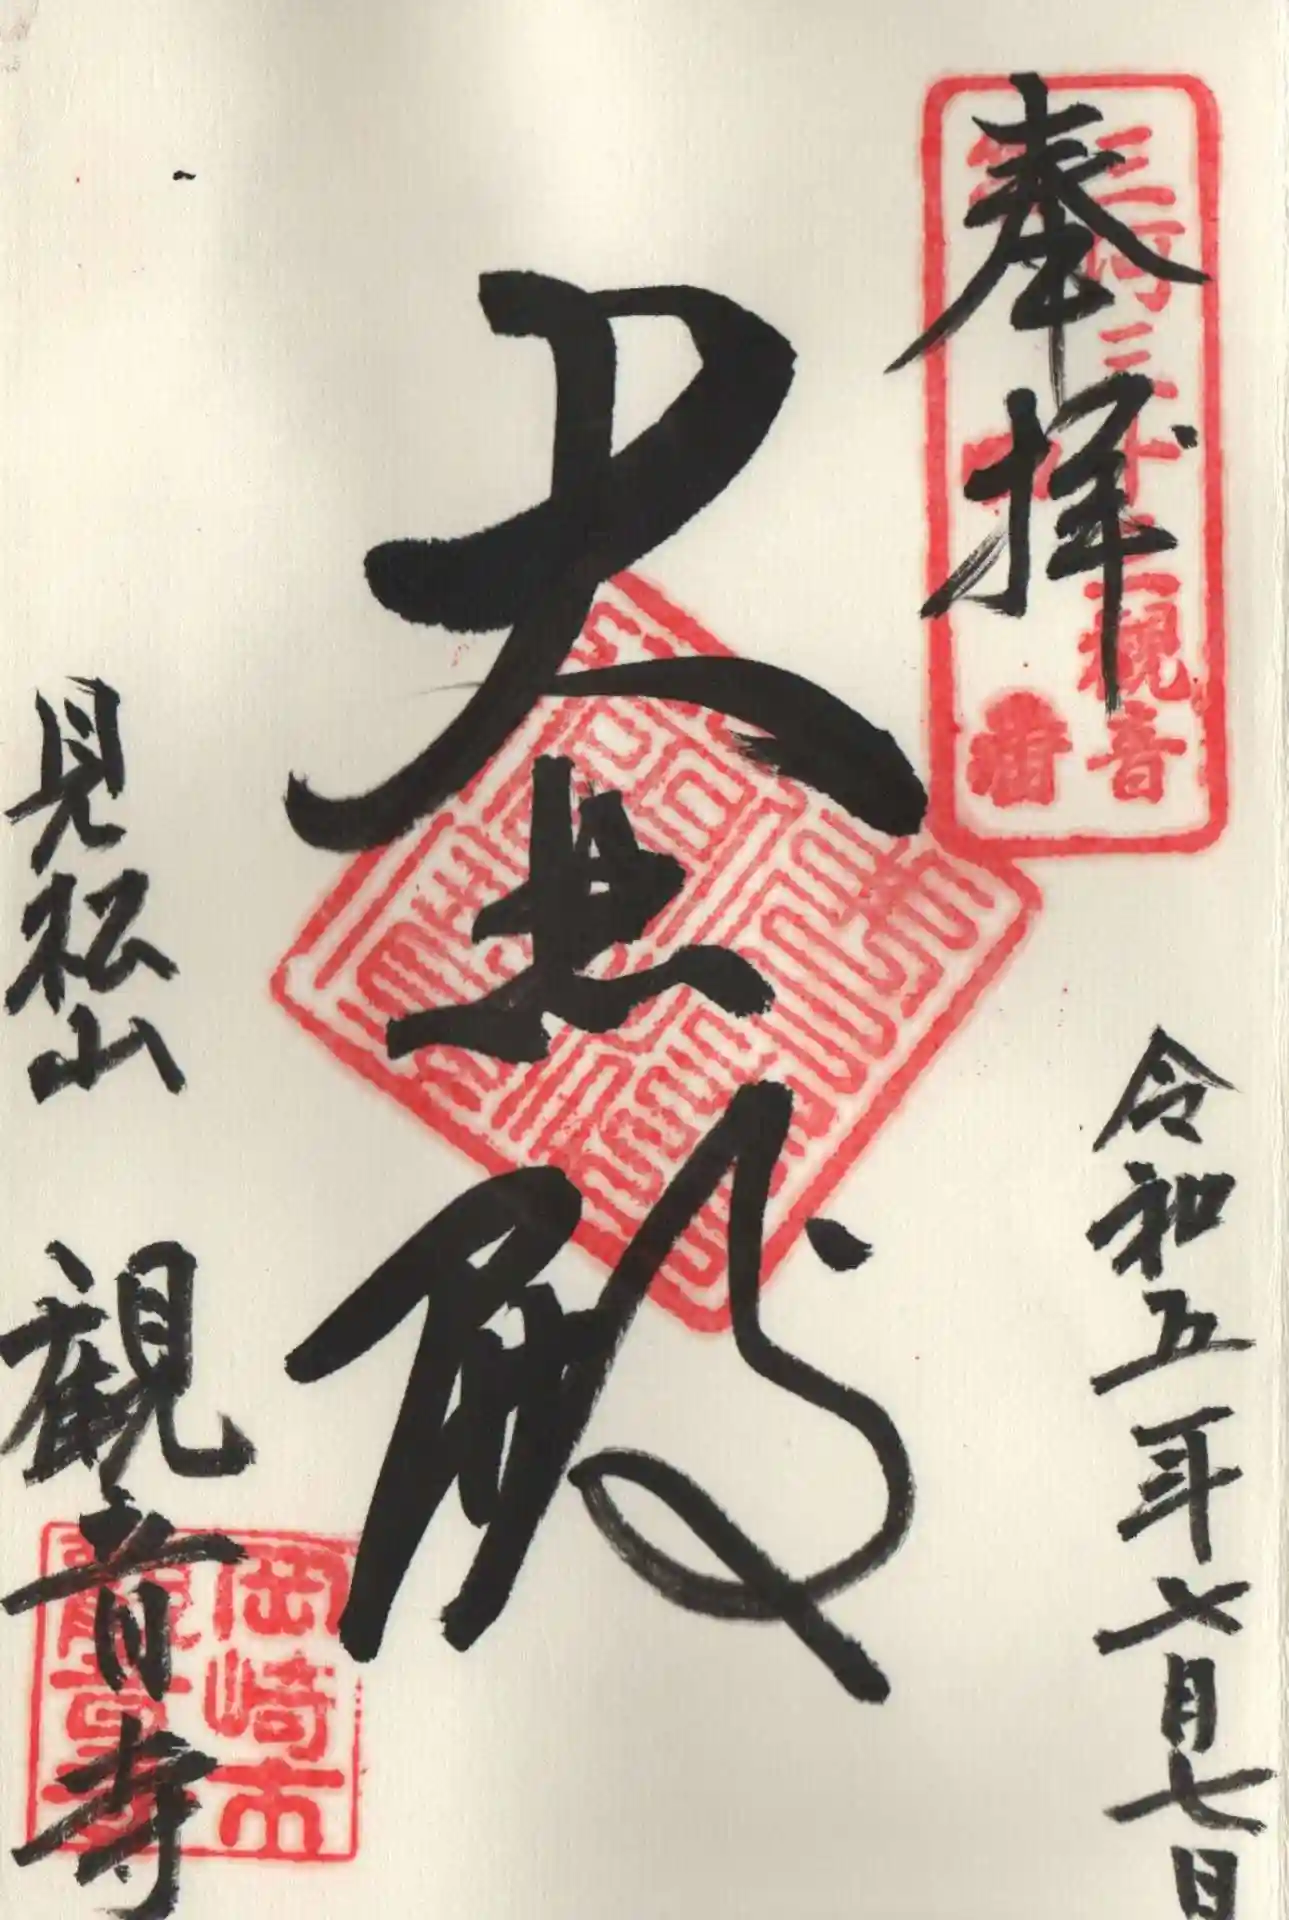 奉拝
三河三十三観音
令和五年七月七日
大悲殿
見松山　観音寺
岡崎市
観音寺